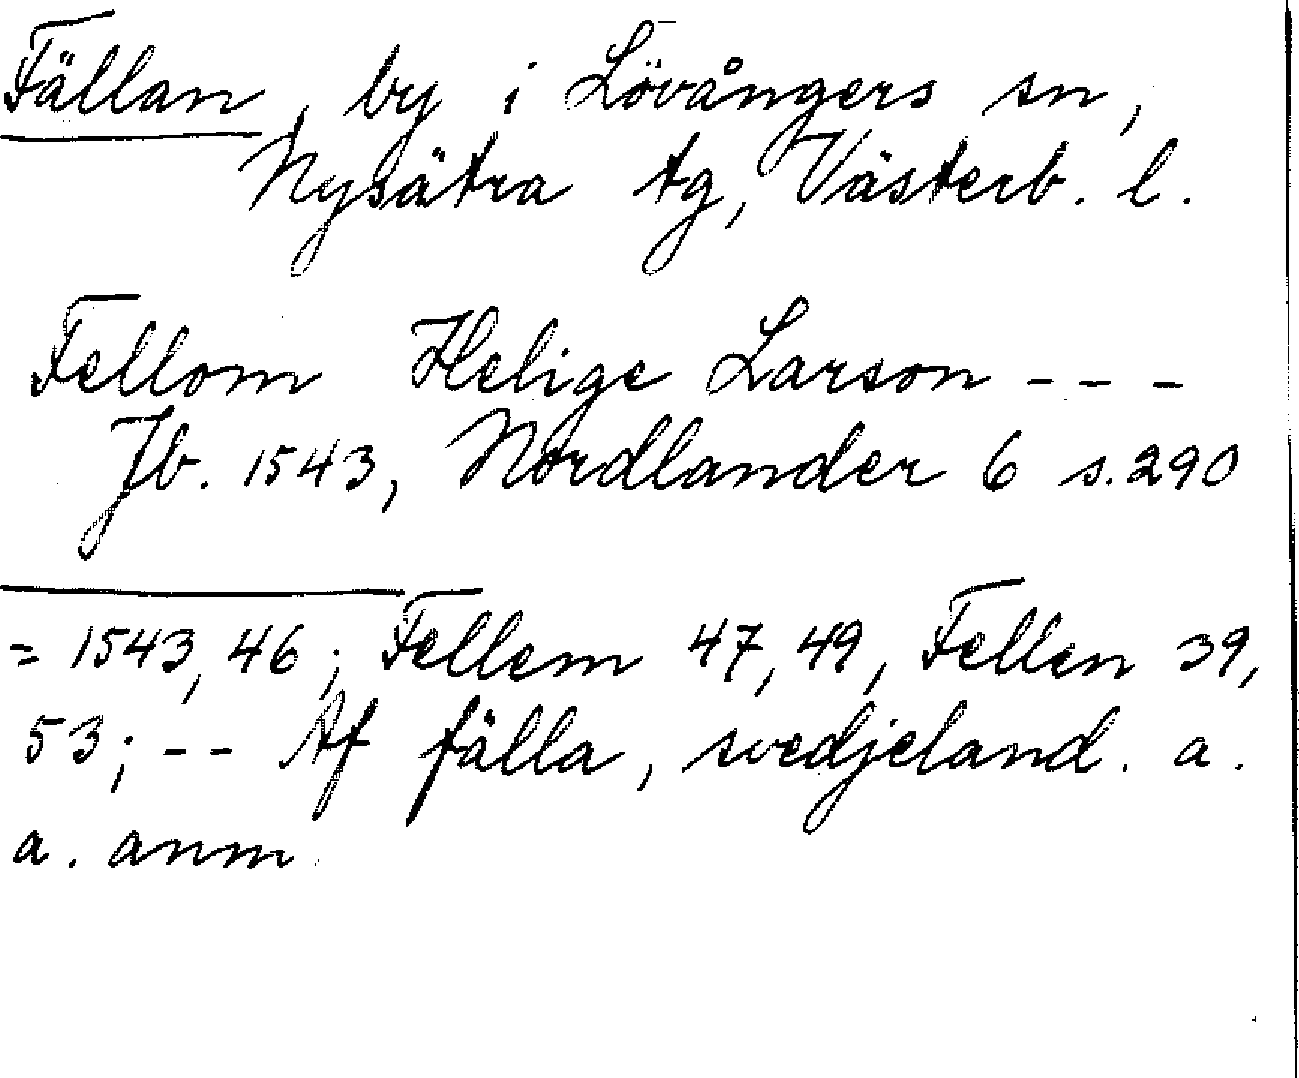 Fällan, by i Lövångers sn,
Nysätra tg, Västerb. l.
Fellom Helige Larson - - -
Jb. 1543, Nordlander 6 s. 290
= 1543, 46; Fellem 47, 49, Fellen 39,
53; - - Af fälla, svedjeland. a.
a. anm.